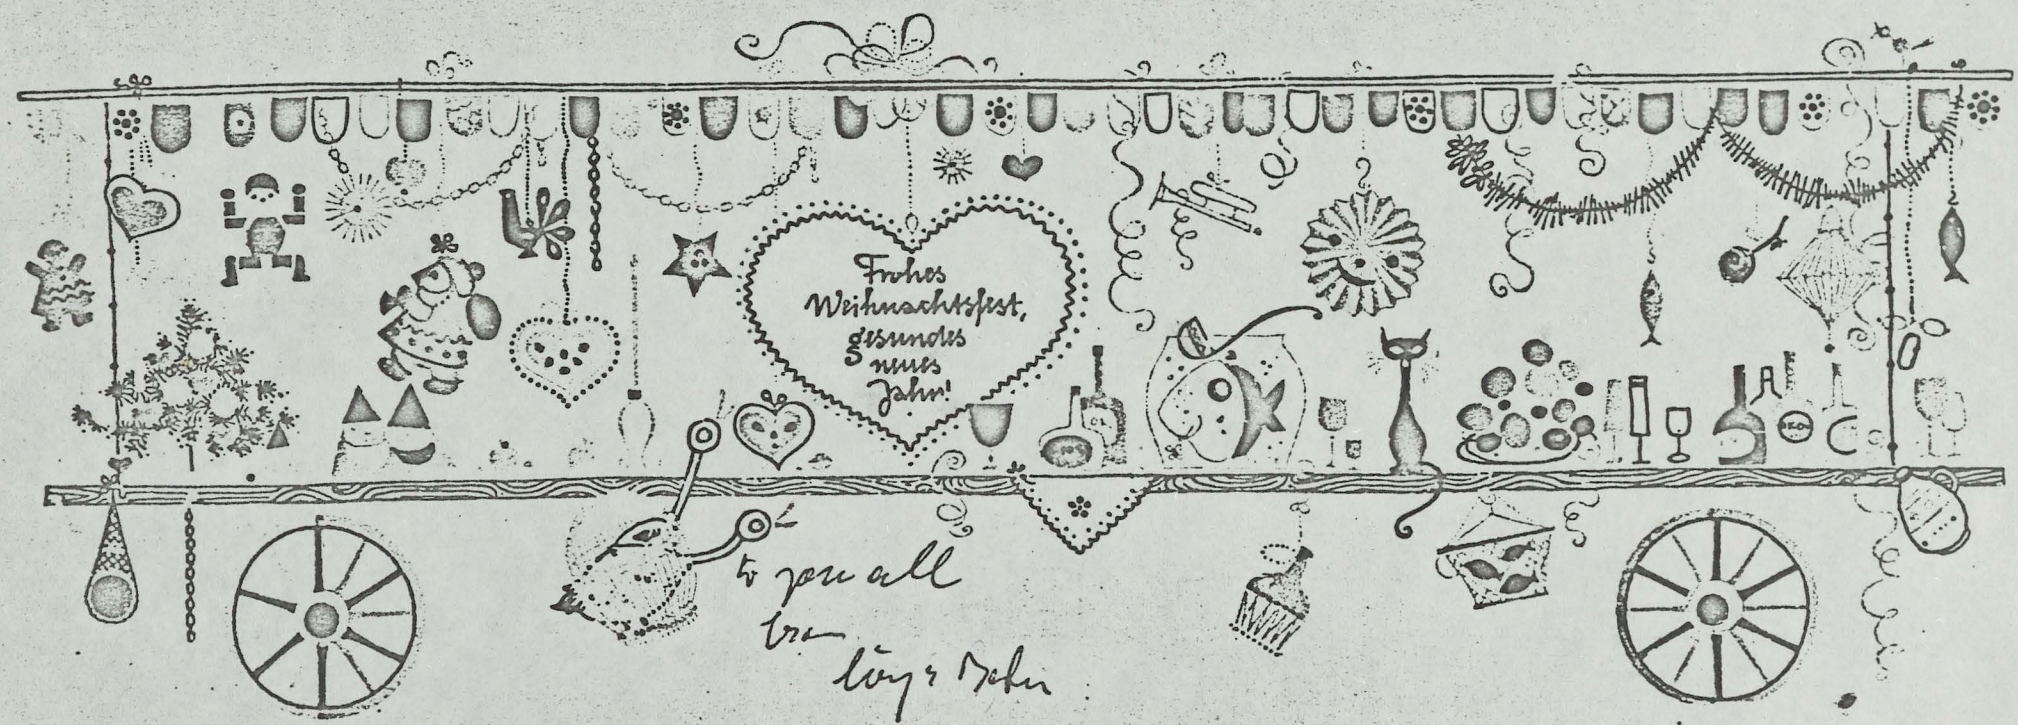 Frohes
Weihnachtsfest,
gesundes
neues
Jahr!
to you all
from